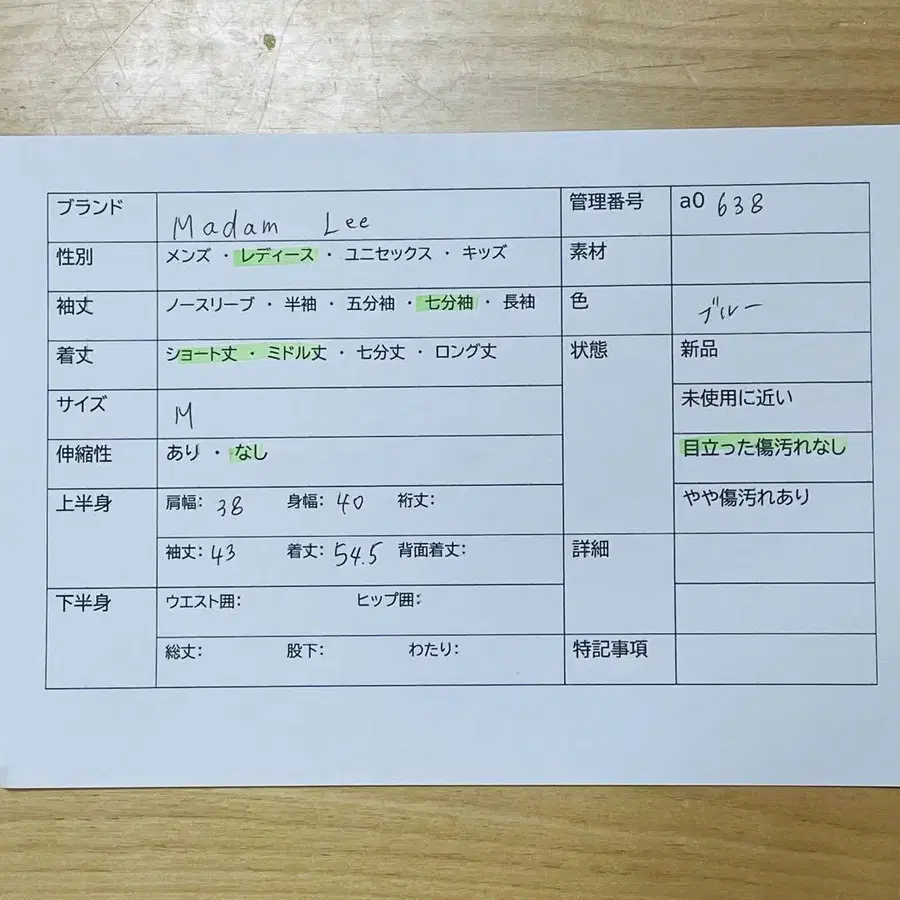 ブランド Madam Lee 管理番号 a0 638
性別 メンズ ・ レディース ・ ユニセックス ・ キッズ 素材
袖丈 ノースリーブ ・ 半袖 ・ 五分袖 ・ 七分袖 ・ 長袖 色 ブルー
着丈 ショート丈 ・ ミドル丈 ・ 七分丈 ・ ロング丈 状態 新品
サイズ M 未使用に近い
伸縮性 あり ・ なし 目立った傷汚れなし
上半身 肩幅: 38 身幅: 40 裄丈: やや傷汚れあり
袖丈: 43 着丈: 54.5 背面着丈: 詳細
下半身 ウエスト囲: ヒップ囲:
総丈: 股下: わたり: 特記事項